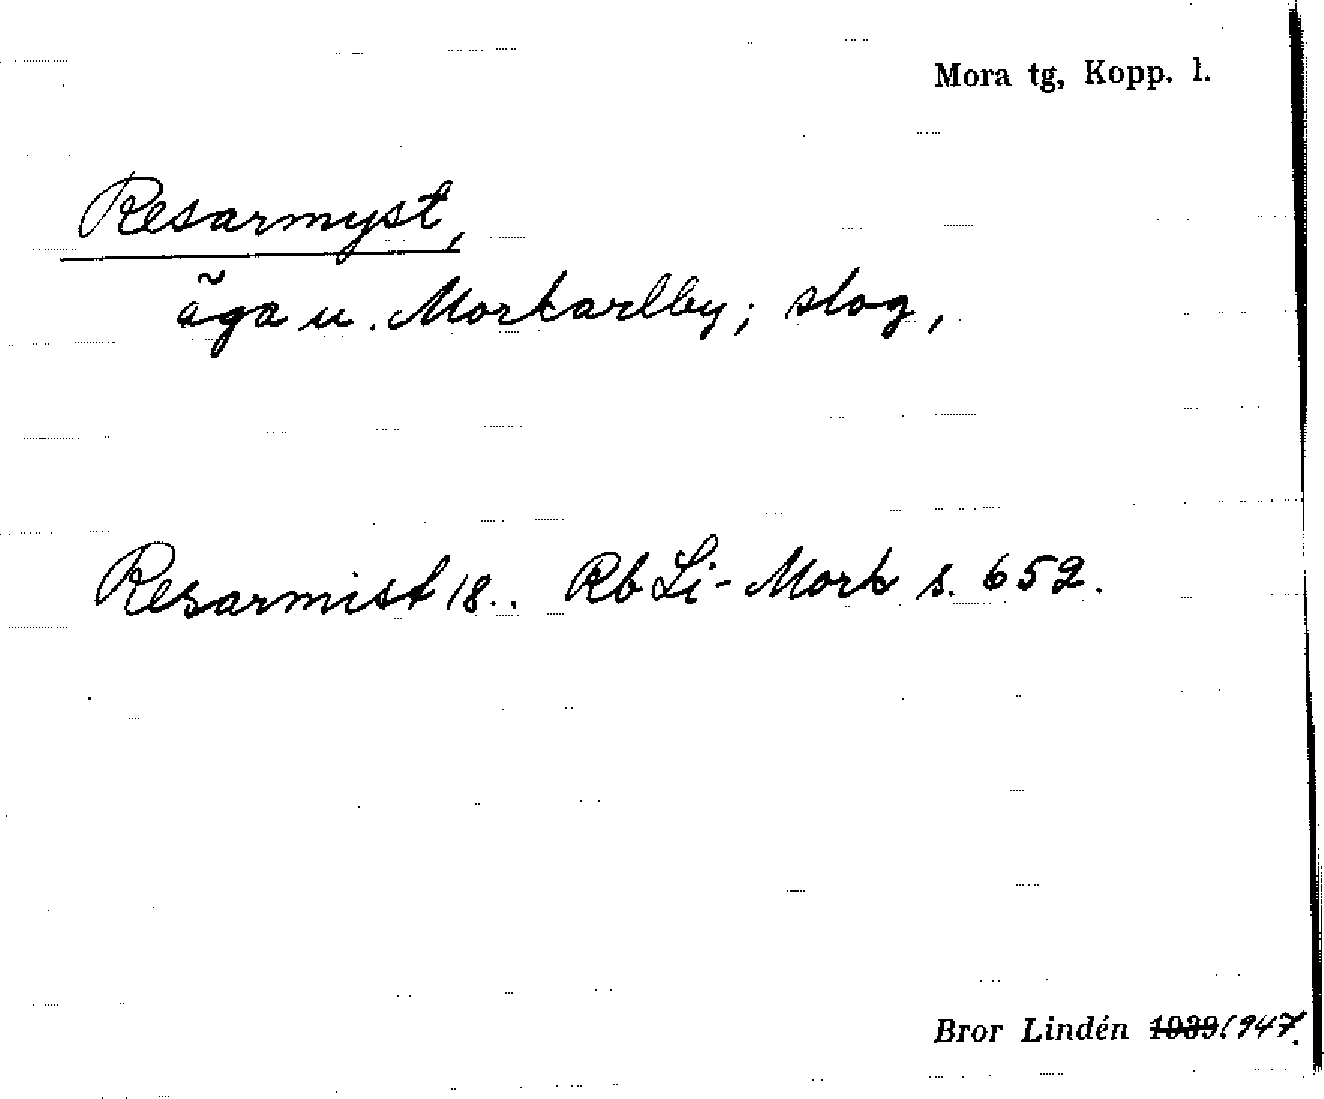 Mora tg, Kopp. l.
Resarmyst,
äga u. Morkarlby; slog,
Resarmist 18.. Rb Li-Mork s. 652.
Bror Lindén 1939 1947.